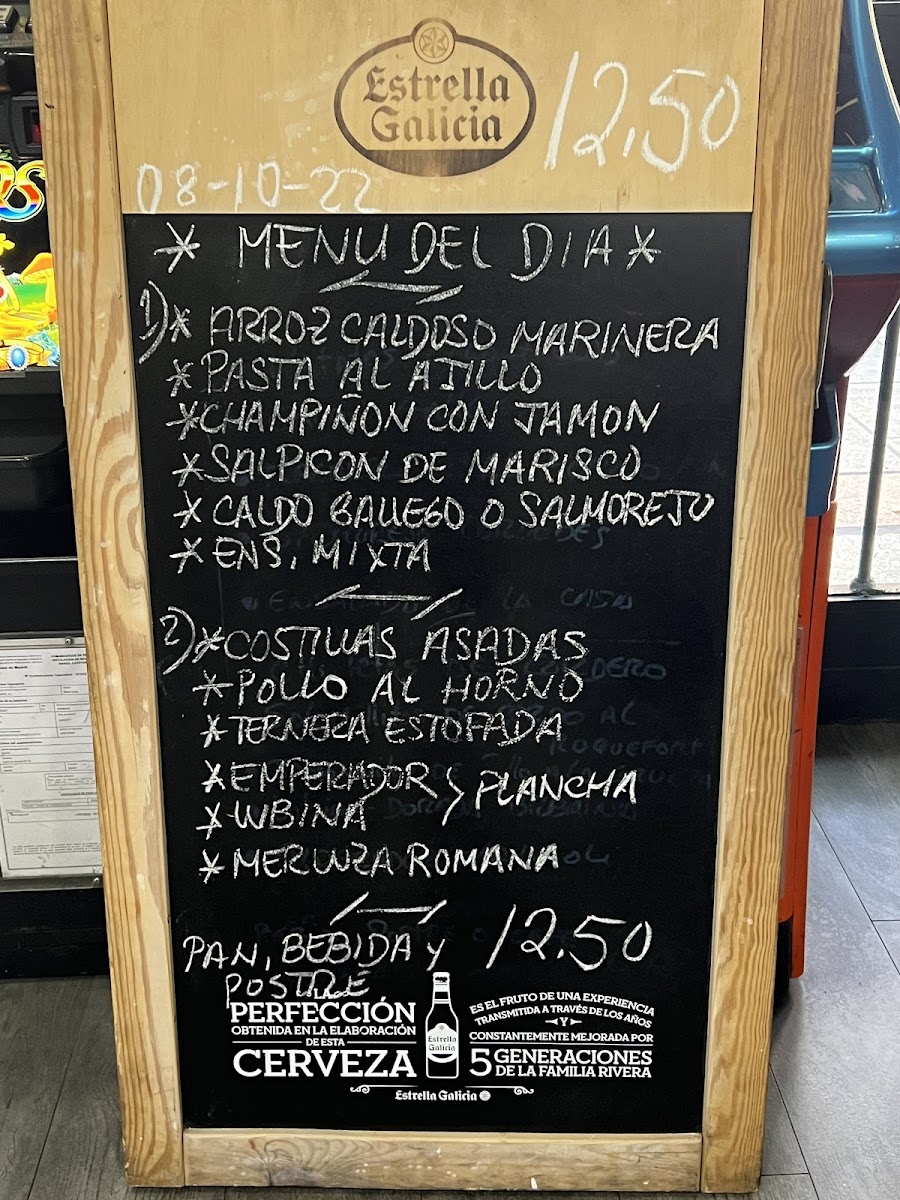 Estrella
Galicia
12,50
08-10-22
* MENU DEL DIA *
1)* ARROZ CALDOSO MARINERA
* PASTA AL AJILLO
* CHAMPIÑON CON JAMON
* SALPICON DE MARISCO
* CALDO GALLEGO O SALMOREJO
* ENS. MIXTA
2)* COSTILLAS ASADAS
* POLLO AL HORNO
* TERNERA ESTOFADA
* EMPERADOR
* LUBINA
} PLANCHA
* MERLUZA ROMANA
PAN, BEBIDA Y 12,50
POSTRE
LA
PERFECCIÓN
OBTENIDA EN LA ELABORACIÓN
DE ESTA
CERVEZA
Estrella
Galicia
ES EL FRUTO DE UNA EXPERIENCIA
TRANSMITIDA A TRAVÉS DE LOS AÑOS
Y
CONSTANTEMENTE MEJORADA POR
5 GENERACIONES
DE LA FAMILIA RIVERA
Estrella Galicia